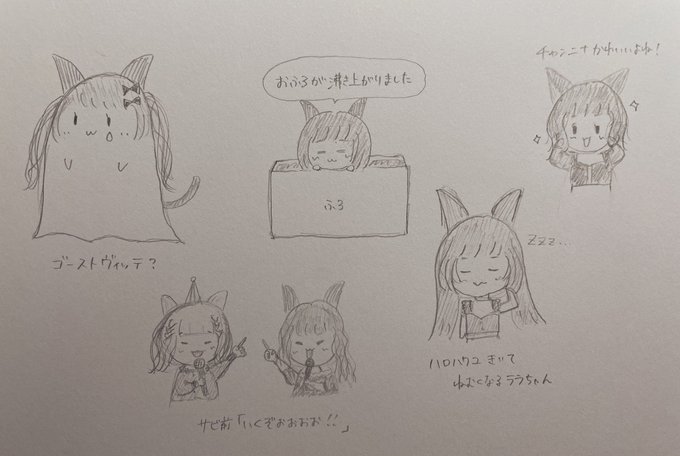 おふろが沸き上がりました
チャンニナかわいいよね!
ふろ
ゴーストヴィッテ?
ZZZ...
ハロハワユきいて
ねむくなるララちゃん
サビ前「いくぞおおおお!!」